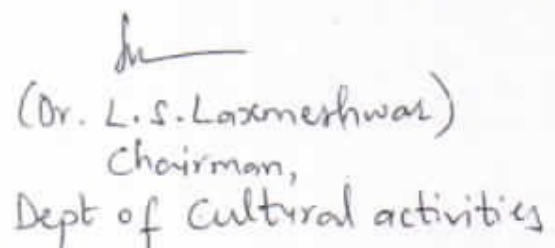 (Dr. L.S. Laxmeshwar)
Chairman,
Dept of Cultural activities